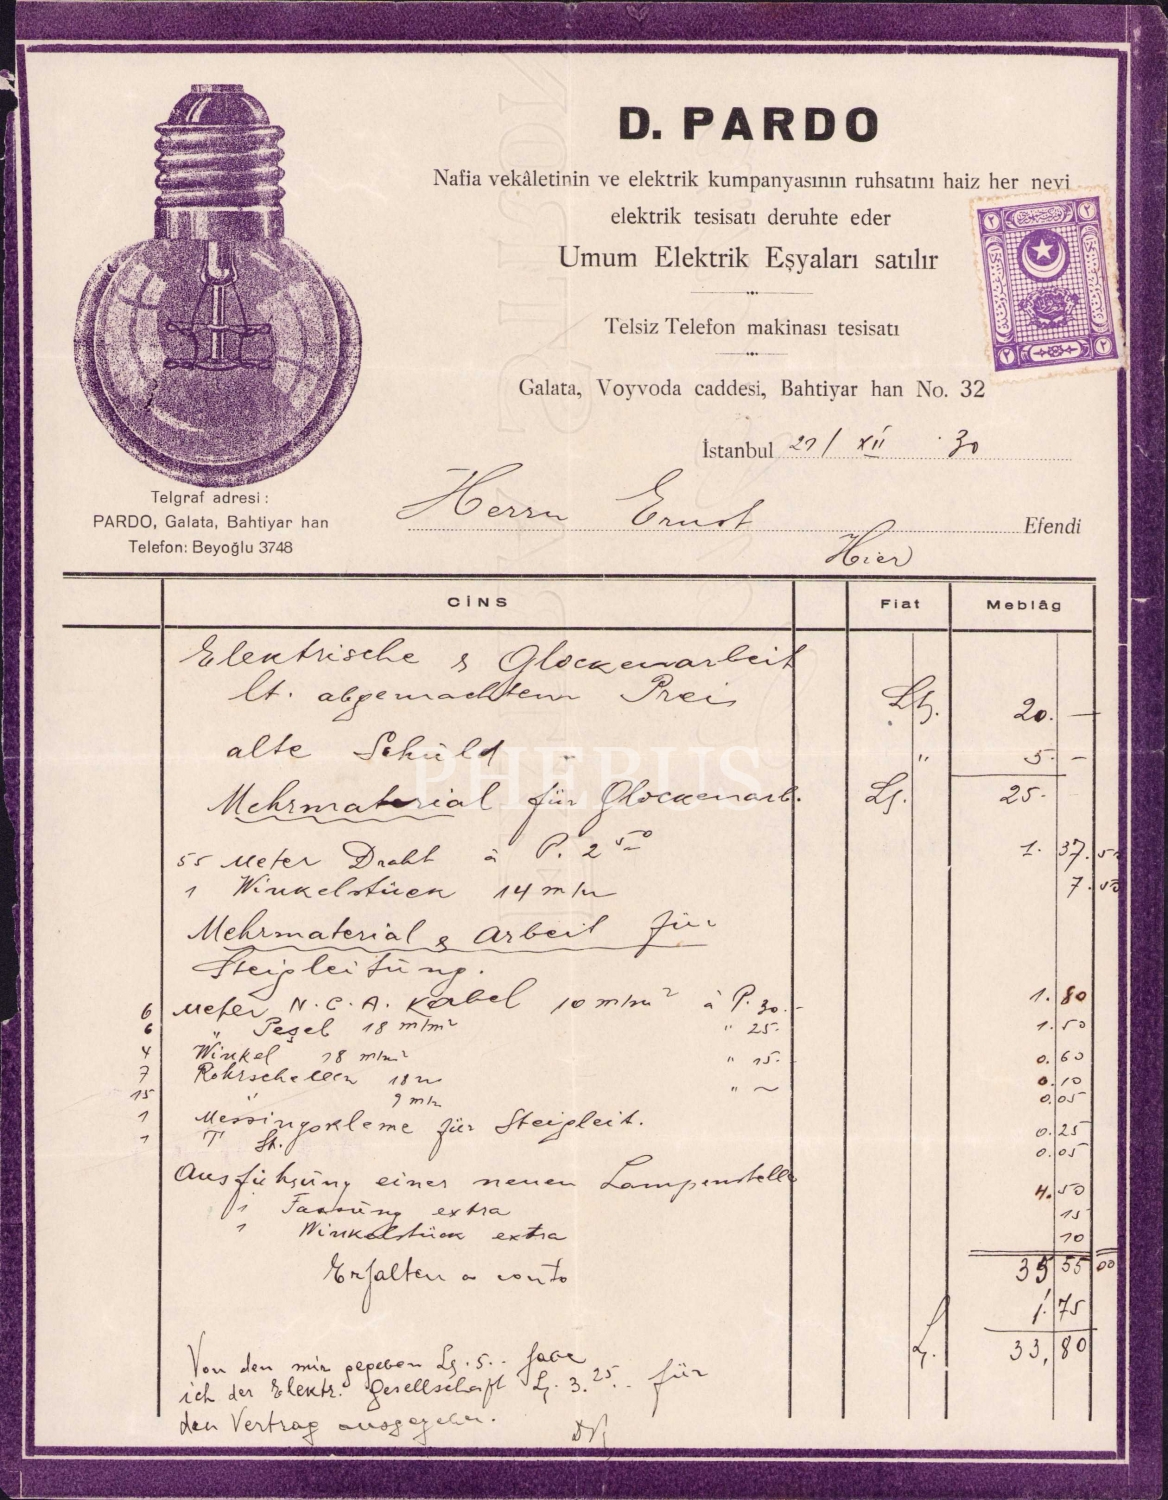 D. PARDO
Nafia vekâletinin ve elektrik kumpanyasının ruhsatını haiz her nevi
elektrik tesisatı deruhte eder
Umum Elektrik Eşyaları satılır
Telsiz Telefon makinası tesisatı
Galata, Voyvoda caddesi, Bahtiyar han No. 32
İstanbul 21/ XII .30
Telgraf adresi :
PARDO, Galata, Bahtiyar han
Telefon: Beyoğlu 3748
Herrn Ernst Efendi
Hier
CİNS Fiat Meblâg
Elektrische & Glockenarbeit
lt. abgemachtem Preis Ltq. 20. —
alte Schuld " 5. —
PHEBUS
Mehrmaterial für Glockenarb. Lq. 25.
55 Meter Draht à P. 2 50 1. 37. 50
1 Winkelstück 14 m/m 7. 50
Mehrmaterial & Arbeit für
Steigleitung.
6 Meter N.C.A. Kabel 10 m/m² à P. 30.- 1. 80
6 " Peşel 18 m/m² " 25. 1. 50
4 Winkel 18 m/m² " 15. 0. 60
7 Rohrschellen 18 m 0. 10
15 " 9 m/m 0. 05
1 Messingkleme für Steigleit. 0. 25
1 T St. 0. 05
Ausführung einer neuen Lampenstelle 4. 50
1 Fassung extra 15
1 Winkelstück extra 10
35 55 00
Erhalten a conto 1. 75
L. 33, 80
Von den mir gegeben Lq. 5.. habe
ich der Elektr. Gesellschaft L. 3. 25.. für
den Vertrag ausgegeben.